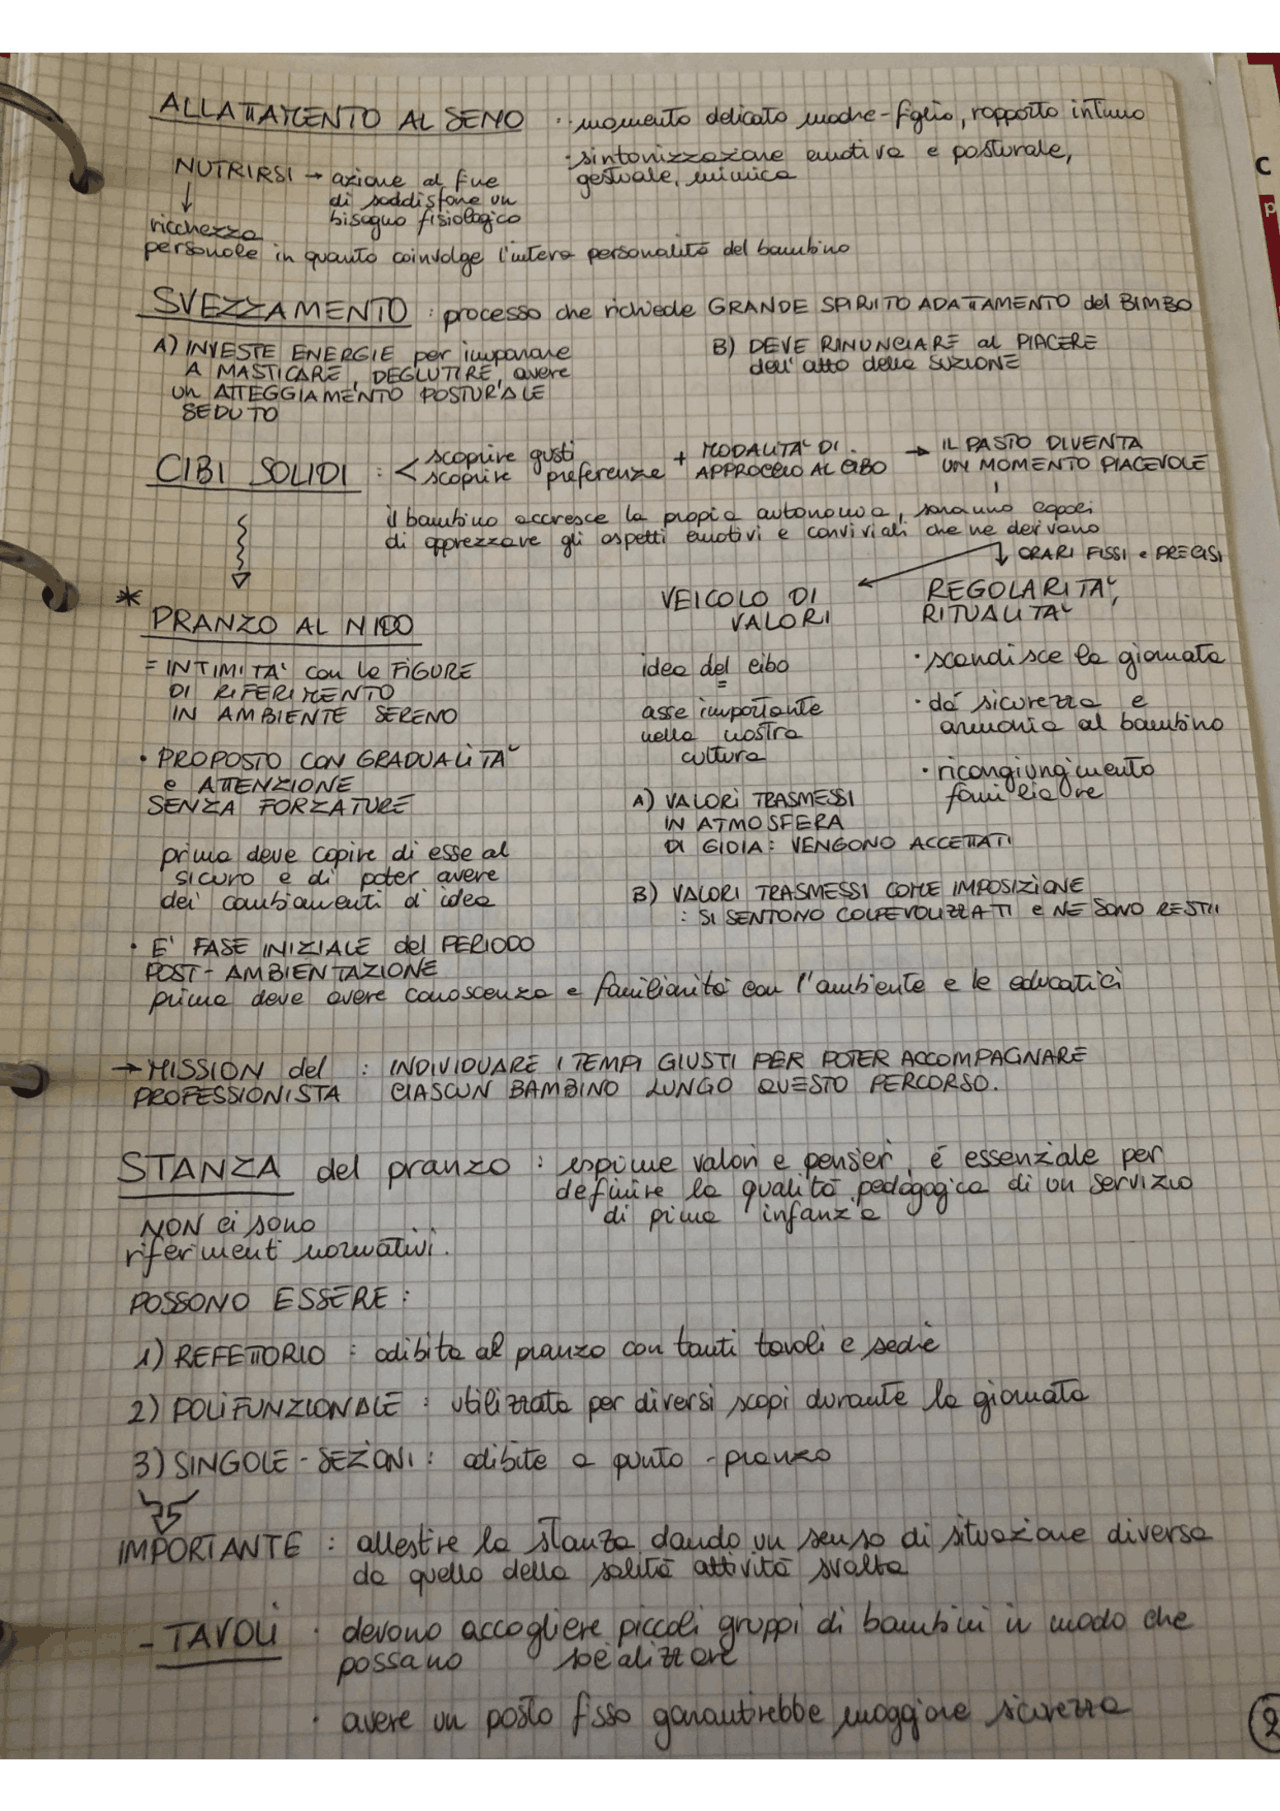 ALLATTAMENTO AL SENO · momento delicato madre-figlio, rapporto intimo
· sintonizzazione emotiva e posturale,
gestuale, mimica
NUTRIRSI → azione al fine
di soddisfare un
bisogno fisiologico
↓
ricchezza
personale in quanto coinvolge l'intera personalità del bambino
SVEZZAMENTO : processo che richiede GRANDE SPIRITO ADATTAMENTO del BIMBO
A) INVESTE ENERGIE per imparare
A MASTICARE, DEGLUTIRE, avere
un ATTEGGIAMENTO POSTURALE
SEDUTO
B) DEVE RINUNCIARE al PIACERE
dell'atto della SUZIONE
CIBI SOLIDI : < scoprire gusti
scoprire preferenze
+ MODALITA' DI
APPROCCIO AL CIBO
→ IL PASTO DIVENTA
UN MOMENTO PIACEVOLE
il bambino accresce la propria autonomia, saranno capaci
di apprezzare gli aspetti emotivi e conviviali che ne derivano
↓ ORARI FISSI e PRECISI
* PRANZO AL NIDO
= INTIMITA' con le FIGURE
DI RIFERIMENTO
IN AMBIENTE SERENO
· PROPOSTO CON GRADUALITA'
e ATTENZIONE
SENZA FORZATURE
prima deve capire di esse al
sicuro e di poter avere
dei cambiamenti d'idea
VEICOLO DI
VALORI
idea del cibo
=
asse importante
nella nostra
cultura
A) VALORI TRASMESSI
IN ATMOSFERA
DI GIOIA: VENGONO ACCETTATI
B) VALORI TRASMESSI COME IMPOSIZIONE
: SI SENTONO COLPEVOLIZZATI e NE SONO RESTII
REGOLARITA',
RITUALITA'
· scandisce la giornata
· dà sicurezza e
armonia al bambino
· ricongiungimento
familiare
· E' FASE INIZIALE del PERIODO
POST-AMBIENTAZIONE
prima deve avere conoscenza e familiarità con l'ambiente e le educatici
→ MISSION del : INDIVIDUARE I TEMPI GIUSTI PER POTER ACCOMPAGNARE
PROFESSIONISTA CIASCUN BAMBINO LUNGO QUESTO PERCORSO.
STANZA del pranzo : esprime valori e pensieri, è essenziale per
definire la qualità pedagogica di un servizio
di prima infanzia
NON ci sono
riferimenti normativi.
POSSONO ESSERE :
1) REFETTORIO : adibita al pranzo con tanti tavoli e sedie
2) POLIFUNZIONALE : utilizzata per diversi scopi durante la giornata
3) SINGOLE-SEZIONI : adibite a punto-pranzo
IMPORTANTE : allestire la stanza dando un senso di situazione diversa
da quello della solita attività svolta
- TAVOLI · devono accogliere piccoli gruppi di bambini in modo che
possano socializzare
· avere un posto fisso garantirebbe maggiore sicurezza
2
C
p